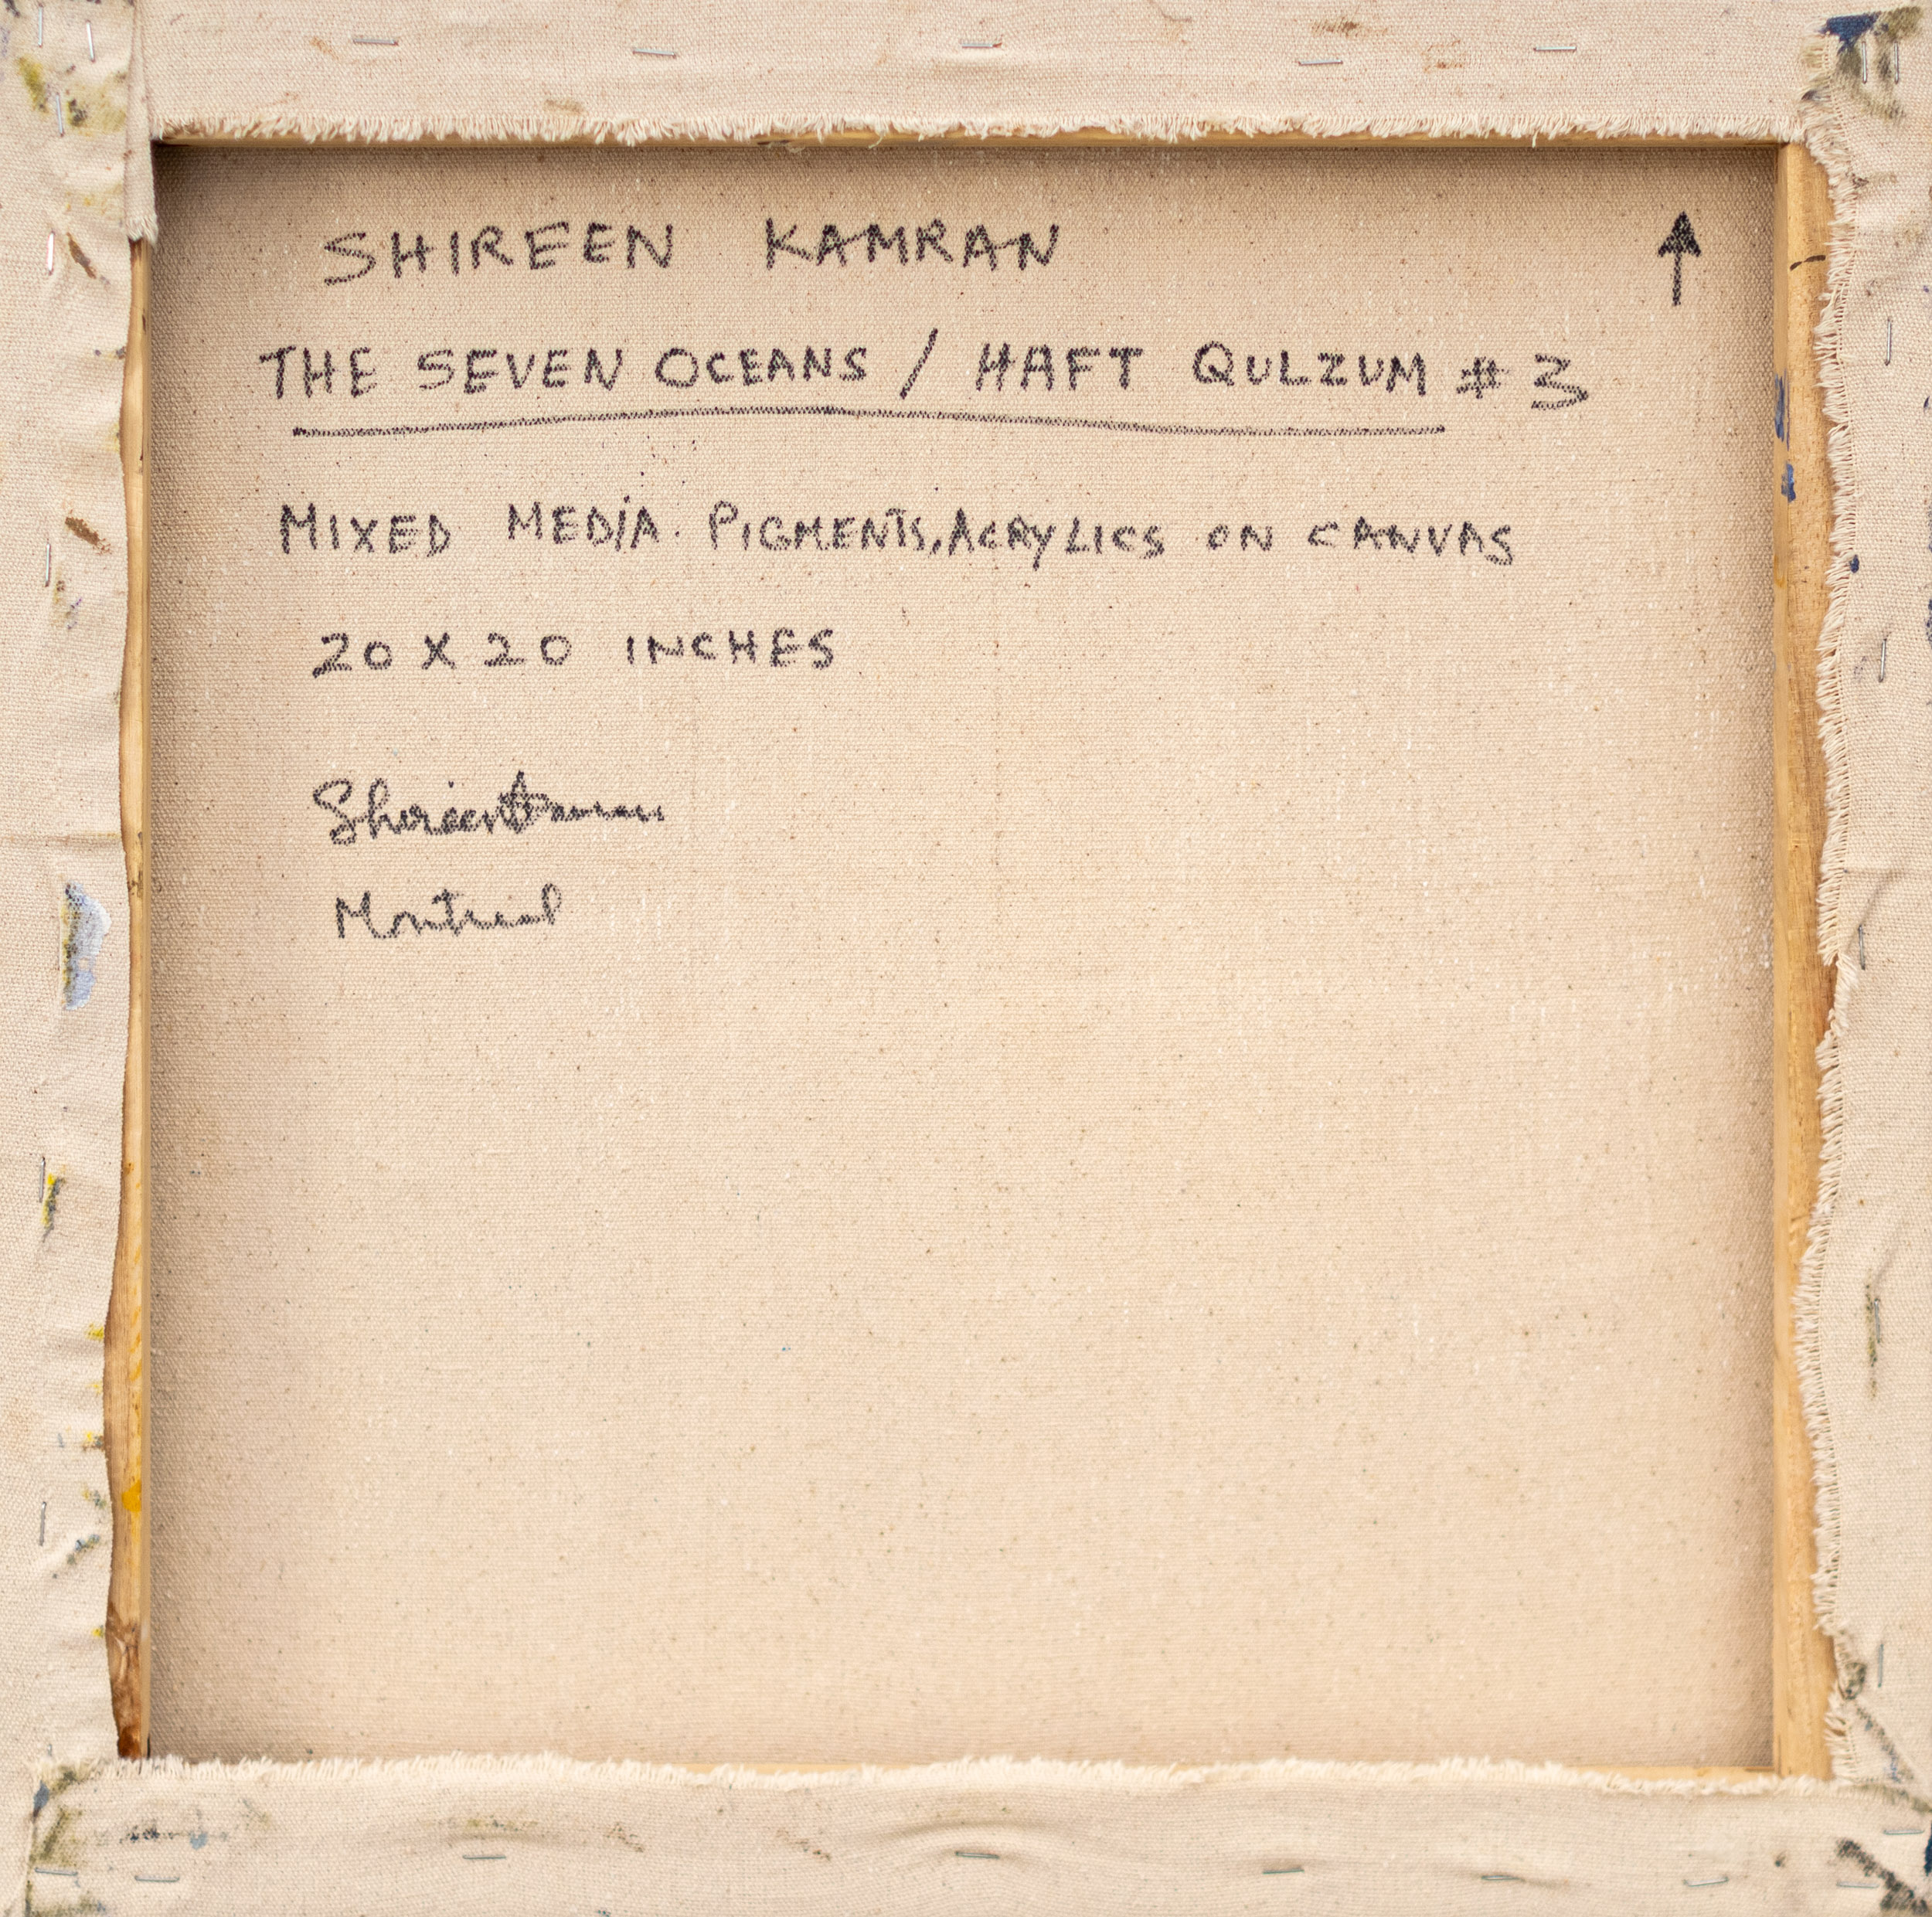 SHIREEN KAMRAN
THE SEVEN OCEANS / HAFT QULZUM # 3
MIXED MEDIA. PIGMENTS, ACRYLICS ON CANVAS
20 X 20 INCHES
Shireen Kamran
Montreal